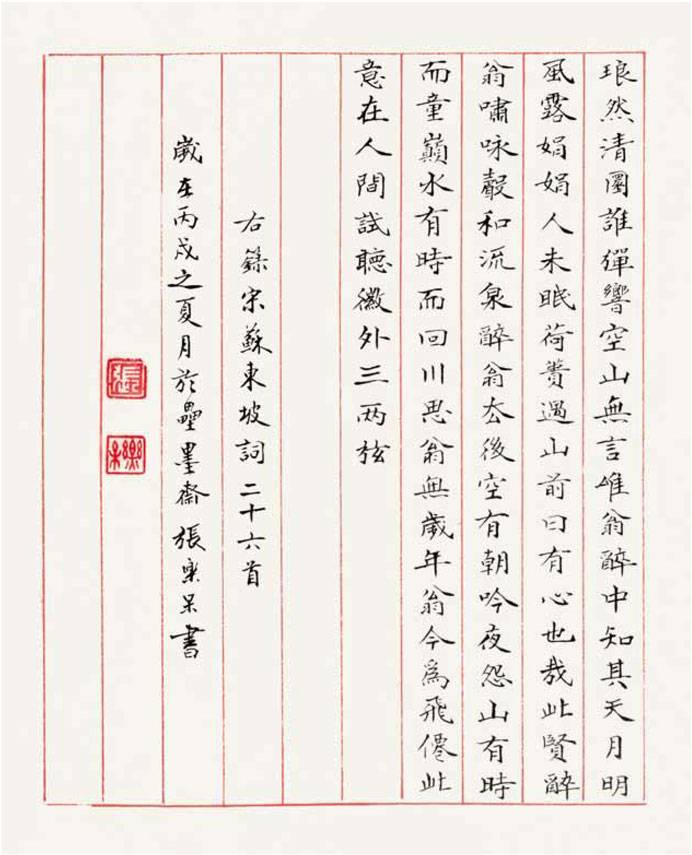 琅然清圜誰彈響空山無言唯翁醉中知其天月明
風露娟娟人未眠荷蕢過山前曰有心也哉此賢醉
翁嘯咏聲和流泉醉翁去後空有朝吟夜怨山有時
而童巔水有時而回川思翁無歲年翁今爲飛僊此
意在人間試聽徽外三兩弦
右錄宋蘇東坡詞二十六首
歲在丙戌之夏月於壘墨齋張樂書
張
櫟